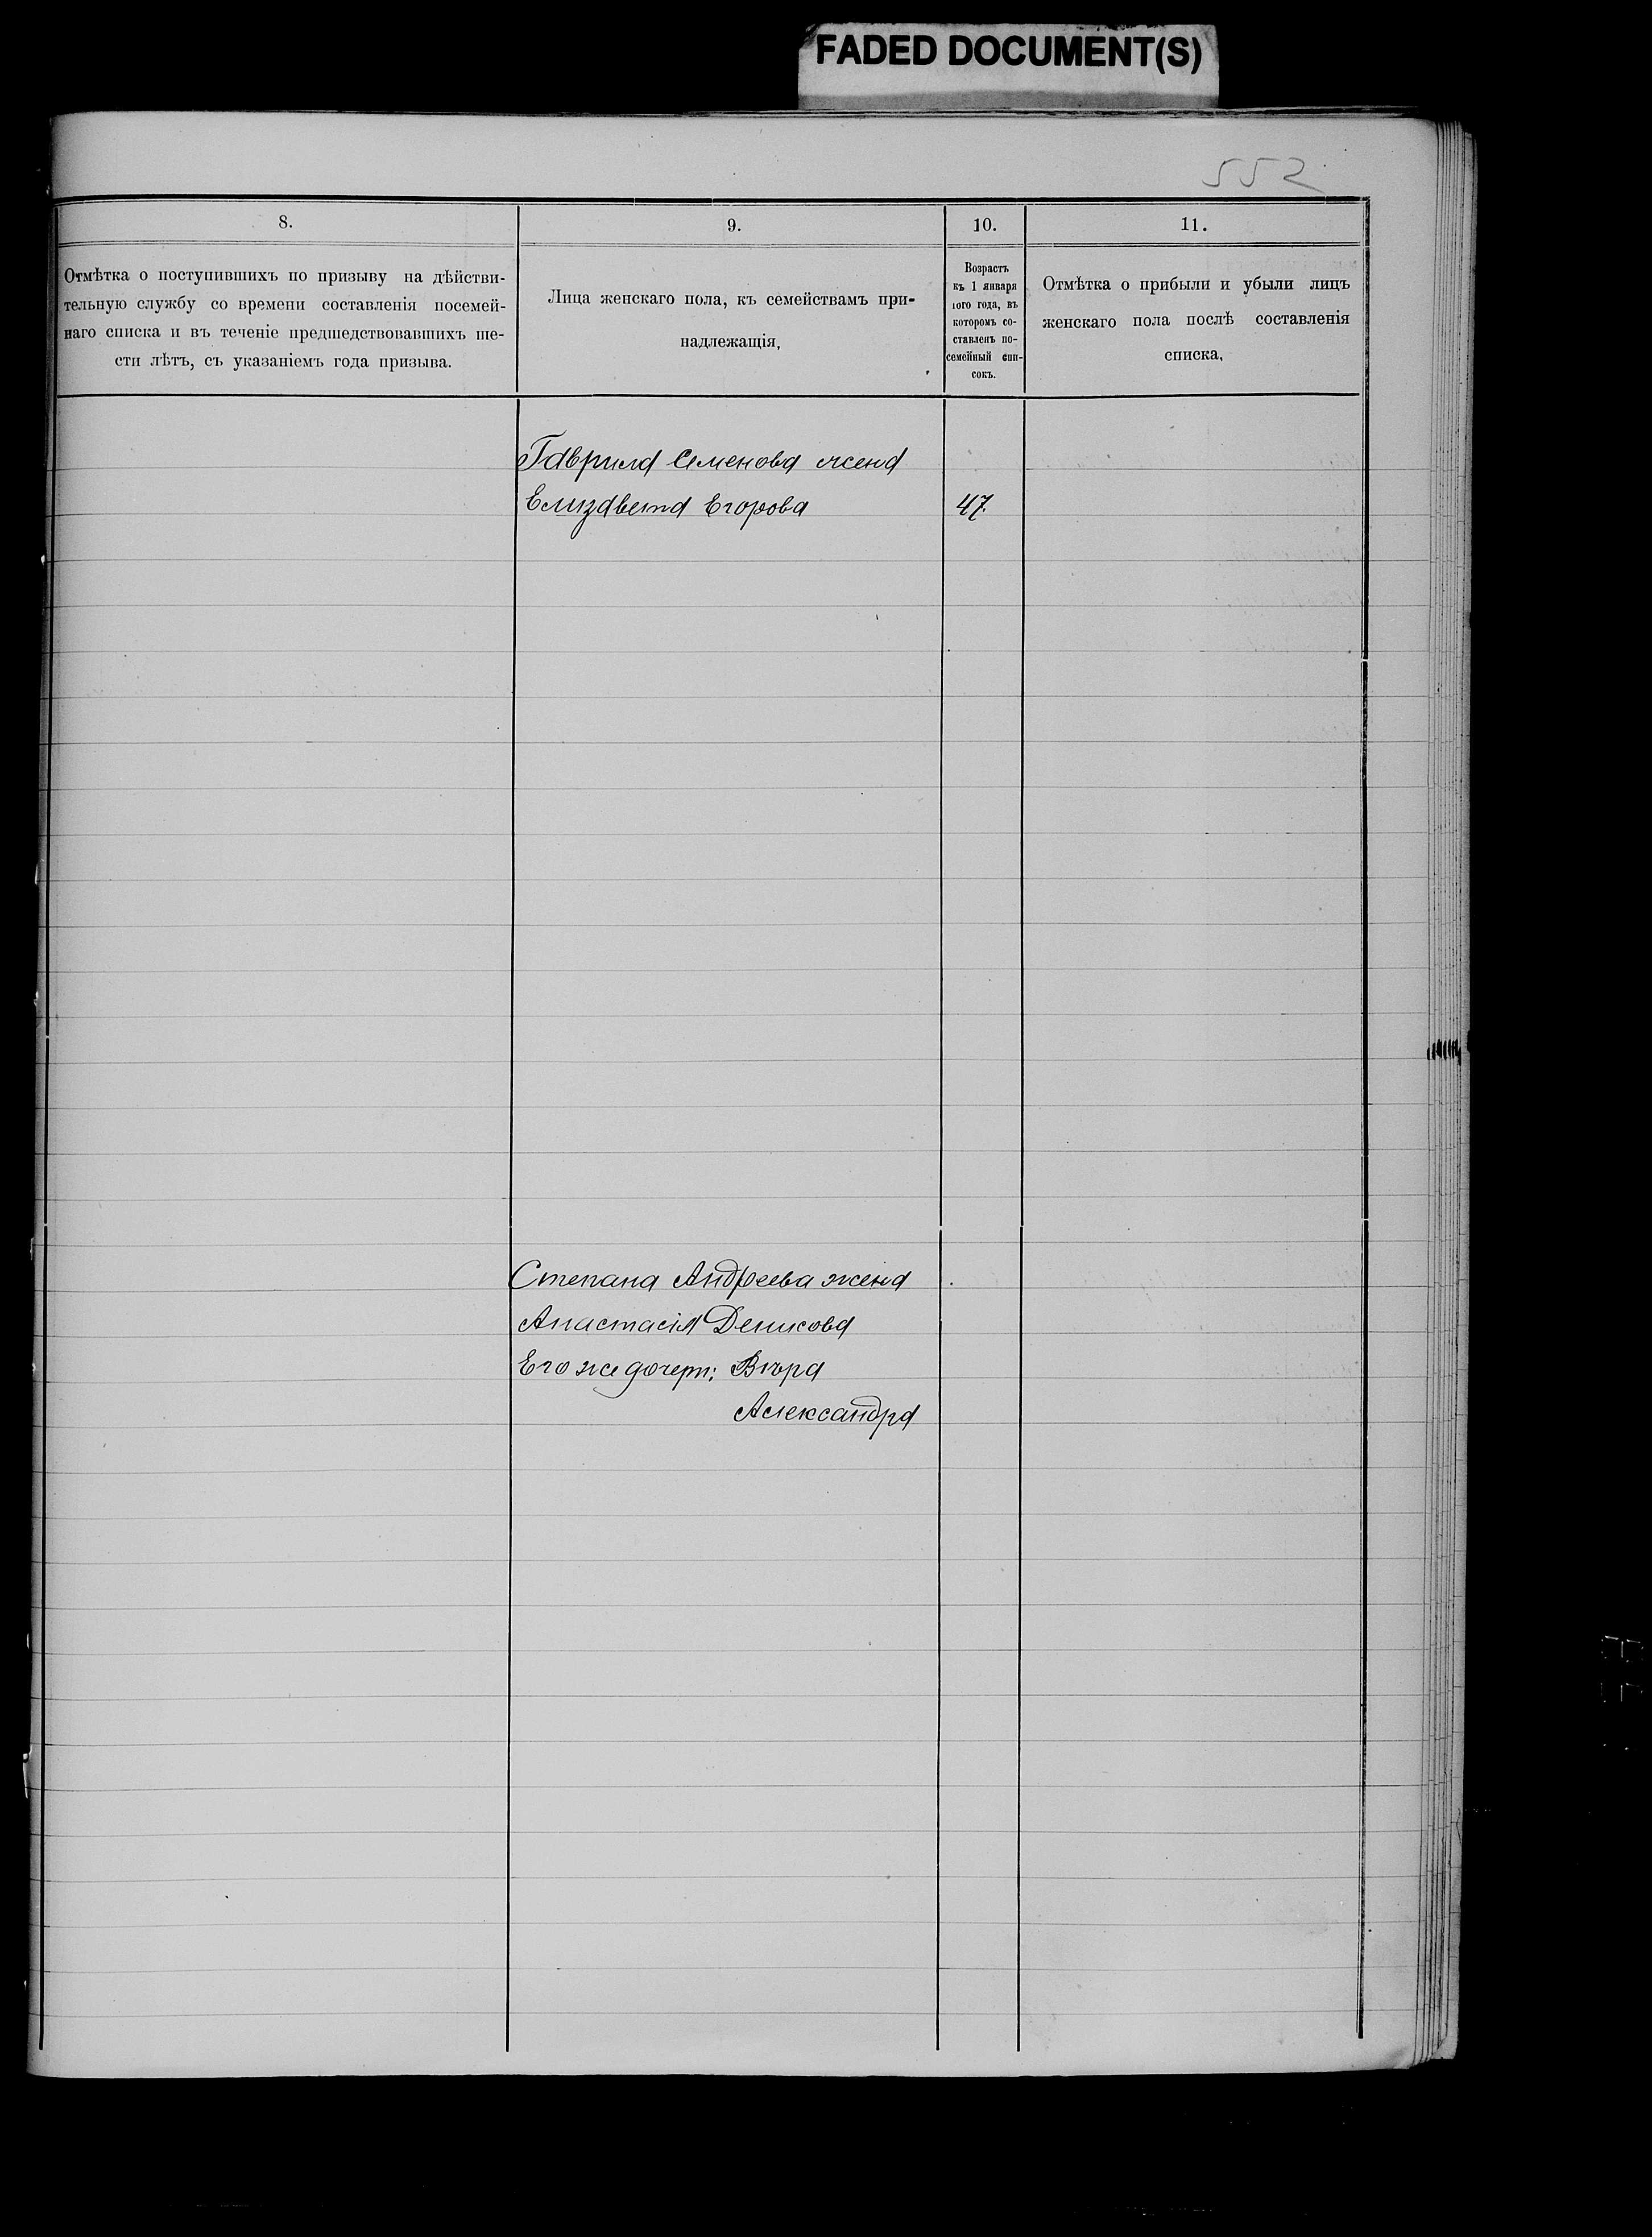 FADED DOCUMENT(S)
552
8.
9.
10.
11.
Отмѣтка о поступившихъ по призыву на дѣйстви-
тельную службу со времени составленія посемей-
наго списка и въ теченіе предшедствовавшихъ ше-
сти лѣтъ, съ указаніемъ года призыва.
Лица женскаго пола, къ семействамъ при-
надлежащія,
Возрастъ
къ 1 января
того года, въ
которомъ со-
ставленъ по-
семейный спи-
сокъ.
Отмѣтка о прибыли и убыли лицъ
женскаго пола послѣ составленія
списка,
Гаврила Семенова жена
Елизавета Егорова 47
Степана Андреева жена
Анастасія
Его же дочери: Вѣра
Александра